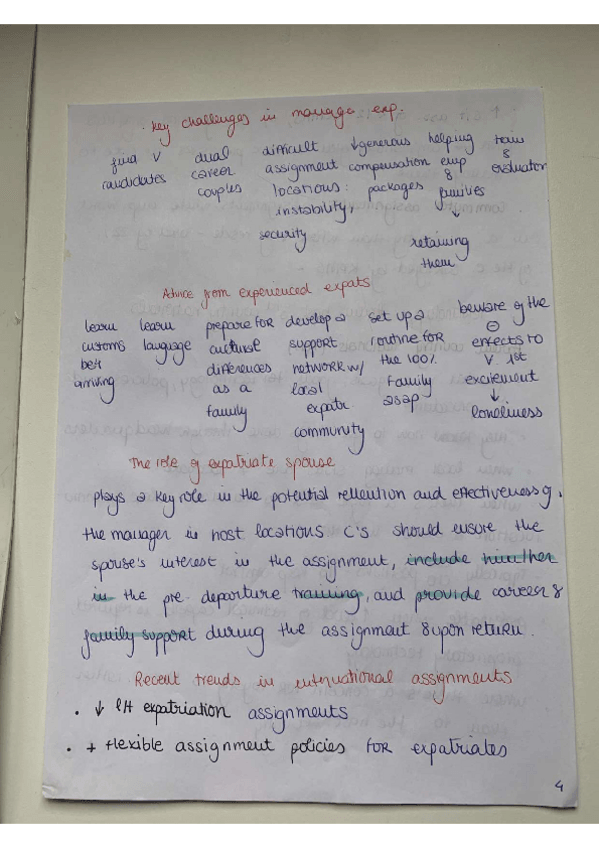 . Key challenges in manage exp.
find V dual difficult ↓generous helping train
candidates career assignment compensation emp &
couples locations: packages & evaluator
instability, families
security ↓
retaining
them
Advice from experienced expats
learn learn prepare for develop a set up a beware of the
customs language culture support routine for ⊖
bef differences network w/ the 100% effects to
arriving as a local family V 1st
family expatr. asap excitement
community ↓
loneliness
The role of expatriate spouse
plays a key role in the potential rellention and effectiveness of
the manager in host locations C's should ensure the
spouse's interest in the assignment, include him/her
in the pre-departure training, and provide career &
family support during the assignment & upon return.
Recent trends in international assignments
. ↓ expatriation assignments
. + flexible assignment policies for expatriates
4